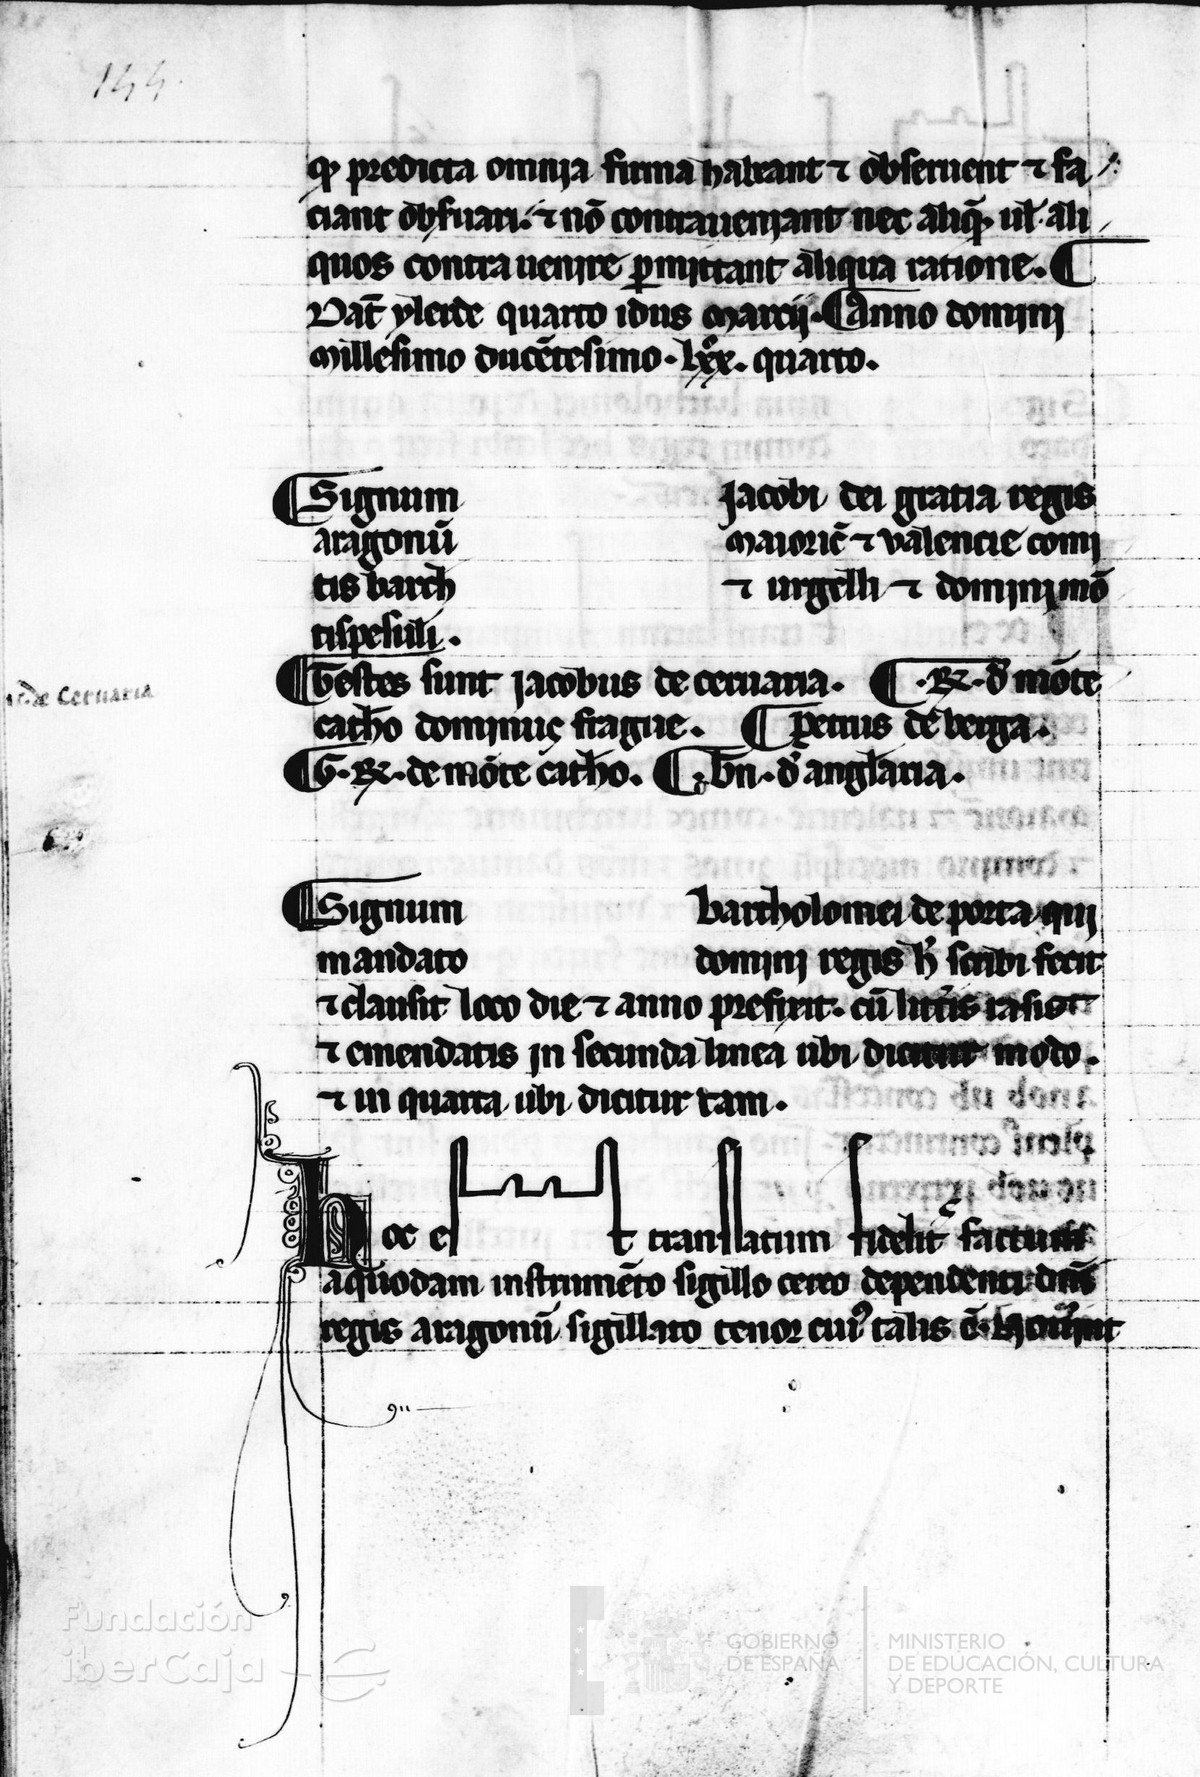 144
qͥ predicta omnia firma habeant ⁊ observent ⁊ fa
ciant obs̄uari. ⁊ nō contraveniant nec aliqͥ ul̄ ali
quos contravenire ꝑmittant aliqua ratione. ¶
Dat̄ ylerde quarto idus marcij. ¶ Anno domini
millesimo ducētesimo. lxͦx. quarto.
¶ Signum Jacobi dei gratia regis
aragonū maioric̄ ⁊ valencie comi
tis barch̄ ⁊ urgelli ⁊ domini mō
tispesuli.
¶ Testes sunt jacobus de cervaria. ¶ .R. d̄ mōte
catho dominus frague. ¶ Petrus de berga.
¶ G. R. de mōte catho. ¶ . bn̄. d̄ anglaria.
.. de Cervaria
¶ Signum bartholomei de porta qui
mandato domini regis h̄ scribi fecit
⁊ clausit loco die ⁊ anno prefixit. cū litt̄is rasis
⁊ emendatis in secunda linea ubi dicitur modo.
⁊ in quarta ubi dicitur tam.
hoc est translatum fidelit̄ factum
a quodam instrumēto sigillo cereo dependenti dn̄i
regis aragonū sigillato tenor cuiꝰ talis ē. Noverint
Fundación
iberCaja
GOBIERNO
DE ESPAÑA
MINISTERIO
DE EDUCACIÓN, CULTURA
Y DEPORTE